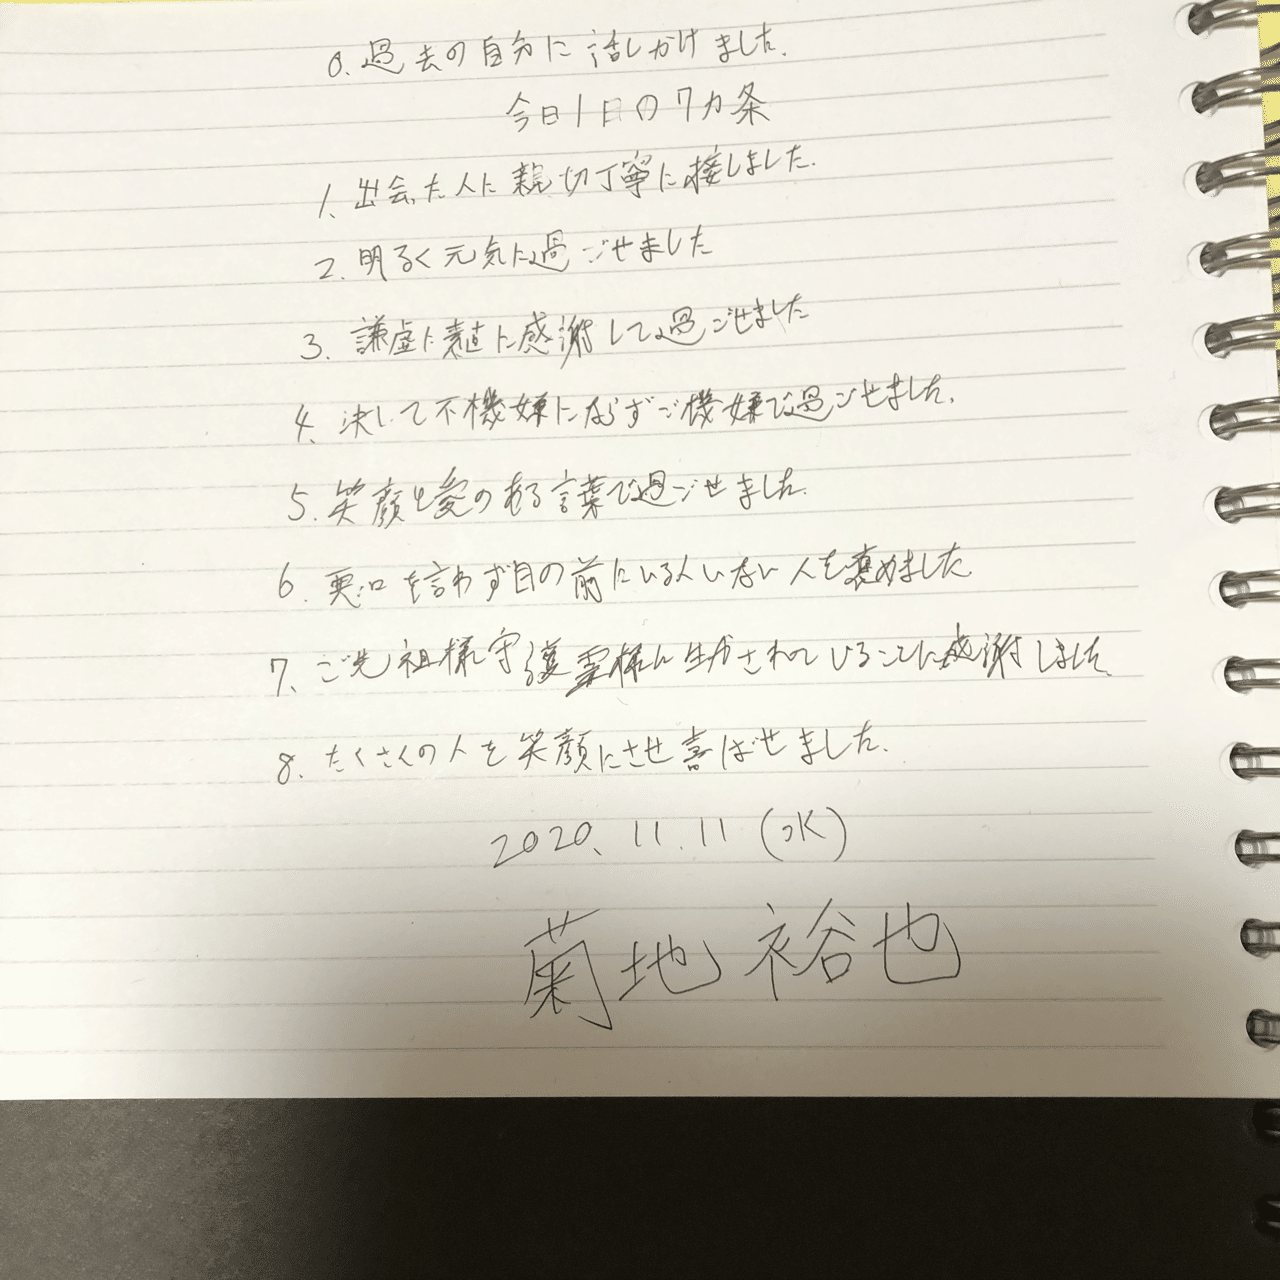 0. 過去の自分に話しかけました.
今日1日の7カ条
1. 出会った人に親切丁寧に接しました.
2. 明るく元気に過ごせました
3. 謙虚に素直に感謝して過ごせました
4. 決して不機嫌にならずご機嫌で過ごせました.
5. 笑顔と愛のある言葉で過ごせました.
6. 悪口を言わず目の前にいる人いない人を褒めました
7. ご先祖様守護霊様に生かされていることに感謝しました.
8. たくさんの人を笑顔にさせ喜ばせました.
2020. 11. 11 (水)
菊地 裕也